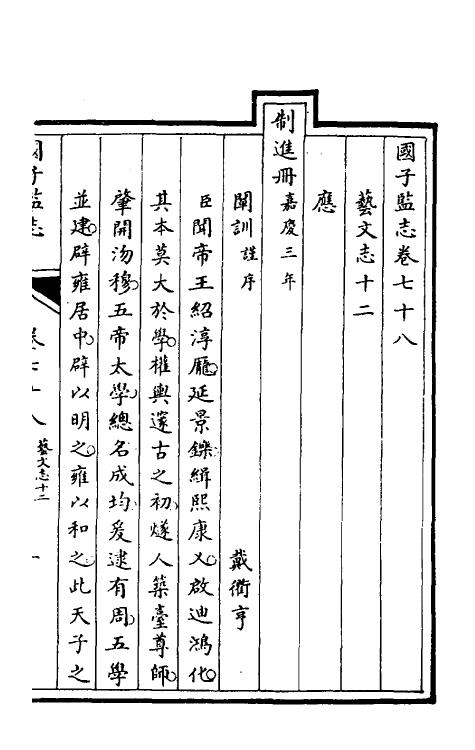 國子監志卷七十八
藝文志十二
應
制進册嘉慶三年
闡訓謹序 戴衢亨
臣聞帝王紹淳龐延景鑠緝熙康乂啟迪鴻化
其本莫大於學權輿邃古之初燧人築臺尊師
肇開沕穆五帝太學總名成均爰逮有周五學
並建辟雍居中辟以明之雍以和之此天子之
國子監志 卷七十八 藝文志十二 一